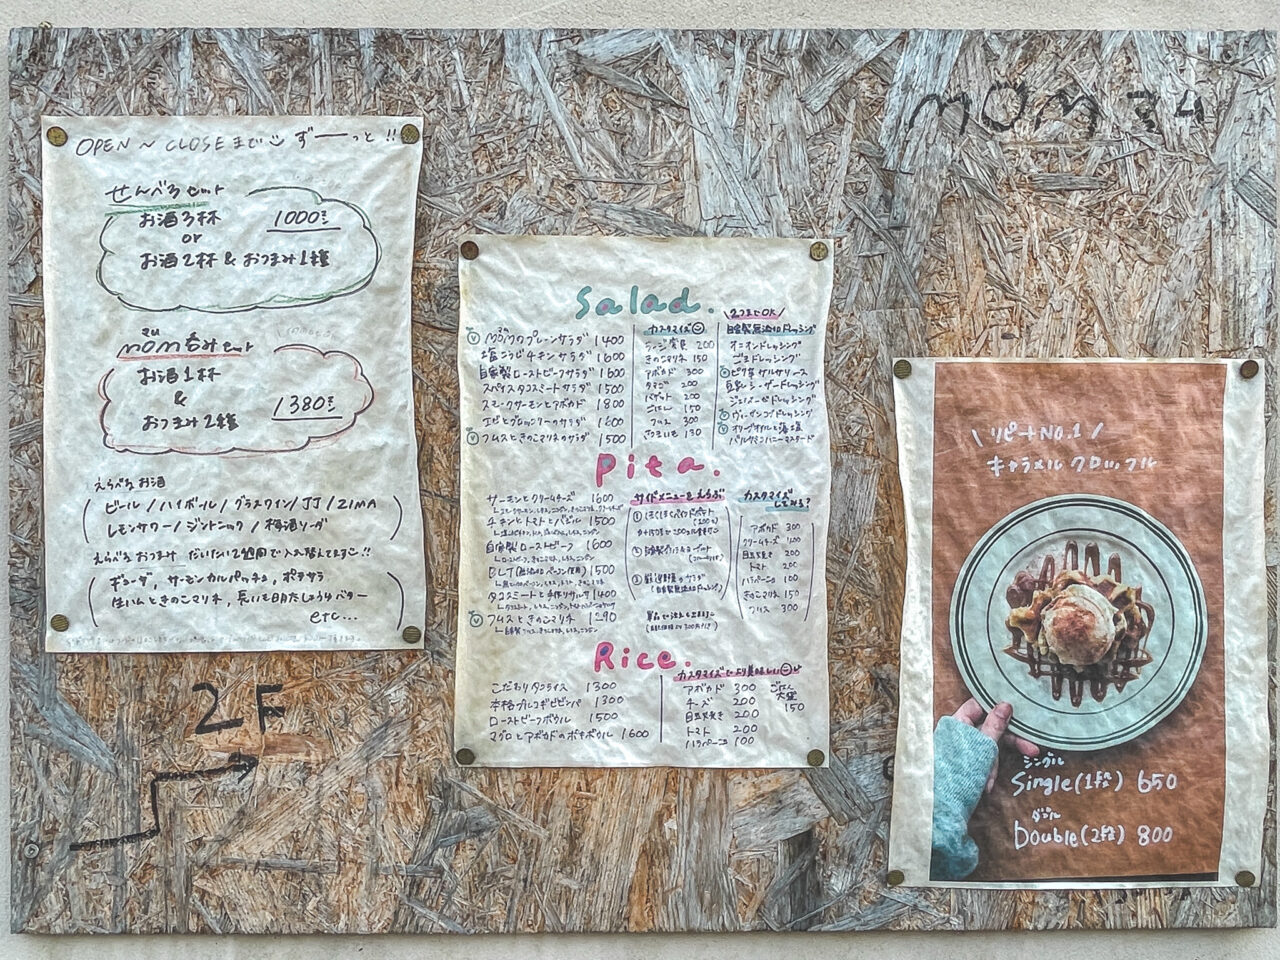 MOM 34
OPEN ~ CLOSE まで ずーーっと!!
せんべろセット
お酒3杯 1000
or
お酒2杯 & おつまみ1種
MOM呑みセット
お酒1杯
&
おつまみ2種 1380
えらべるお酒
ビール/ハイボール/グラスワイン/JJ/ZIMA
レモンサワー/ジントニック/梅酒ソーダ
えらべるおつまみ だいたい2週間で入れ替えてますっ!!
ギョーザ, サーモンカルパッチョ, ポテサラ
生ハムときのこマリネ, 長いも明たしょうゆバター
etc...
2F
Salad.
MOMのプレーンサラダ 1400
塩こうじチキンサラダ 1600
自家製ローストビーフサラダ 1600
スパイスタコスミートサラダ 1500
スモークサーモンとアボカド 1800
エビとブロッコリーのサラダ 1600
フムスときのこマリネのサラダ 1500
カスタマイズ
200
きのこマリネ 150
アボカド 300
タマゴ 200
バゲット 200
ごはん 150
フムス 300
さつまいも 130
2つまでOK
自家製無添加ドレッシング
オニオンドレッシング
ごまドレッシング
ピクルスサルサソース
豆乳シーザードレッシング
ジェノベーゼドレッシング
ヴィーガンコブドレッシング
オリーブオイルと藻塩
バルサミコハニーマスタード
Pita.
サーモンとクリームチーズ 1600
チキンとトマトとバジル 1500
自家製ローストビーフ 1600
BLT(無添加ベーコン使用) 1500
タコスミートと手作りサルサ 1400
フムスときのこマリネ 1290
サイドメニューをえらぶ
カスタマイズしてみる?
アボカド 300
クリームチーズ 200
目玉焼き 200
トマト 200
ハラペーニョ 100
きのこマリネ 150
フムス 300
Rice.
こだわりタコライス 1300
本格プルコギビビンバ 1300
ローストビーフボウル 1500
マグロとアボカドのポキボウル 1600
カスタマイズでより美味しい
アボカド 300
チーズ 200
目玉焼き 200
トマト 200
ハラペーニョ 100
ごはん
大盛
150
\リピートNO.1/
キャラメルクロッフル
シングル
Single(1段) 650
ダブル
Double(2段) 800